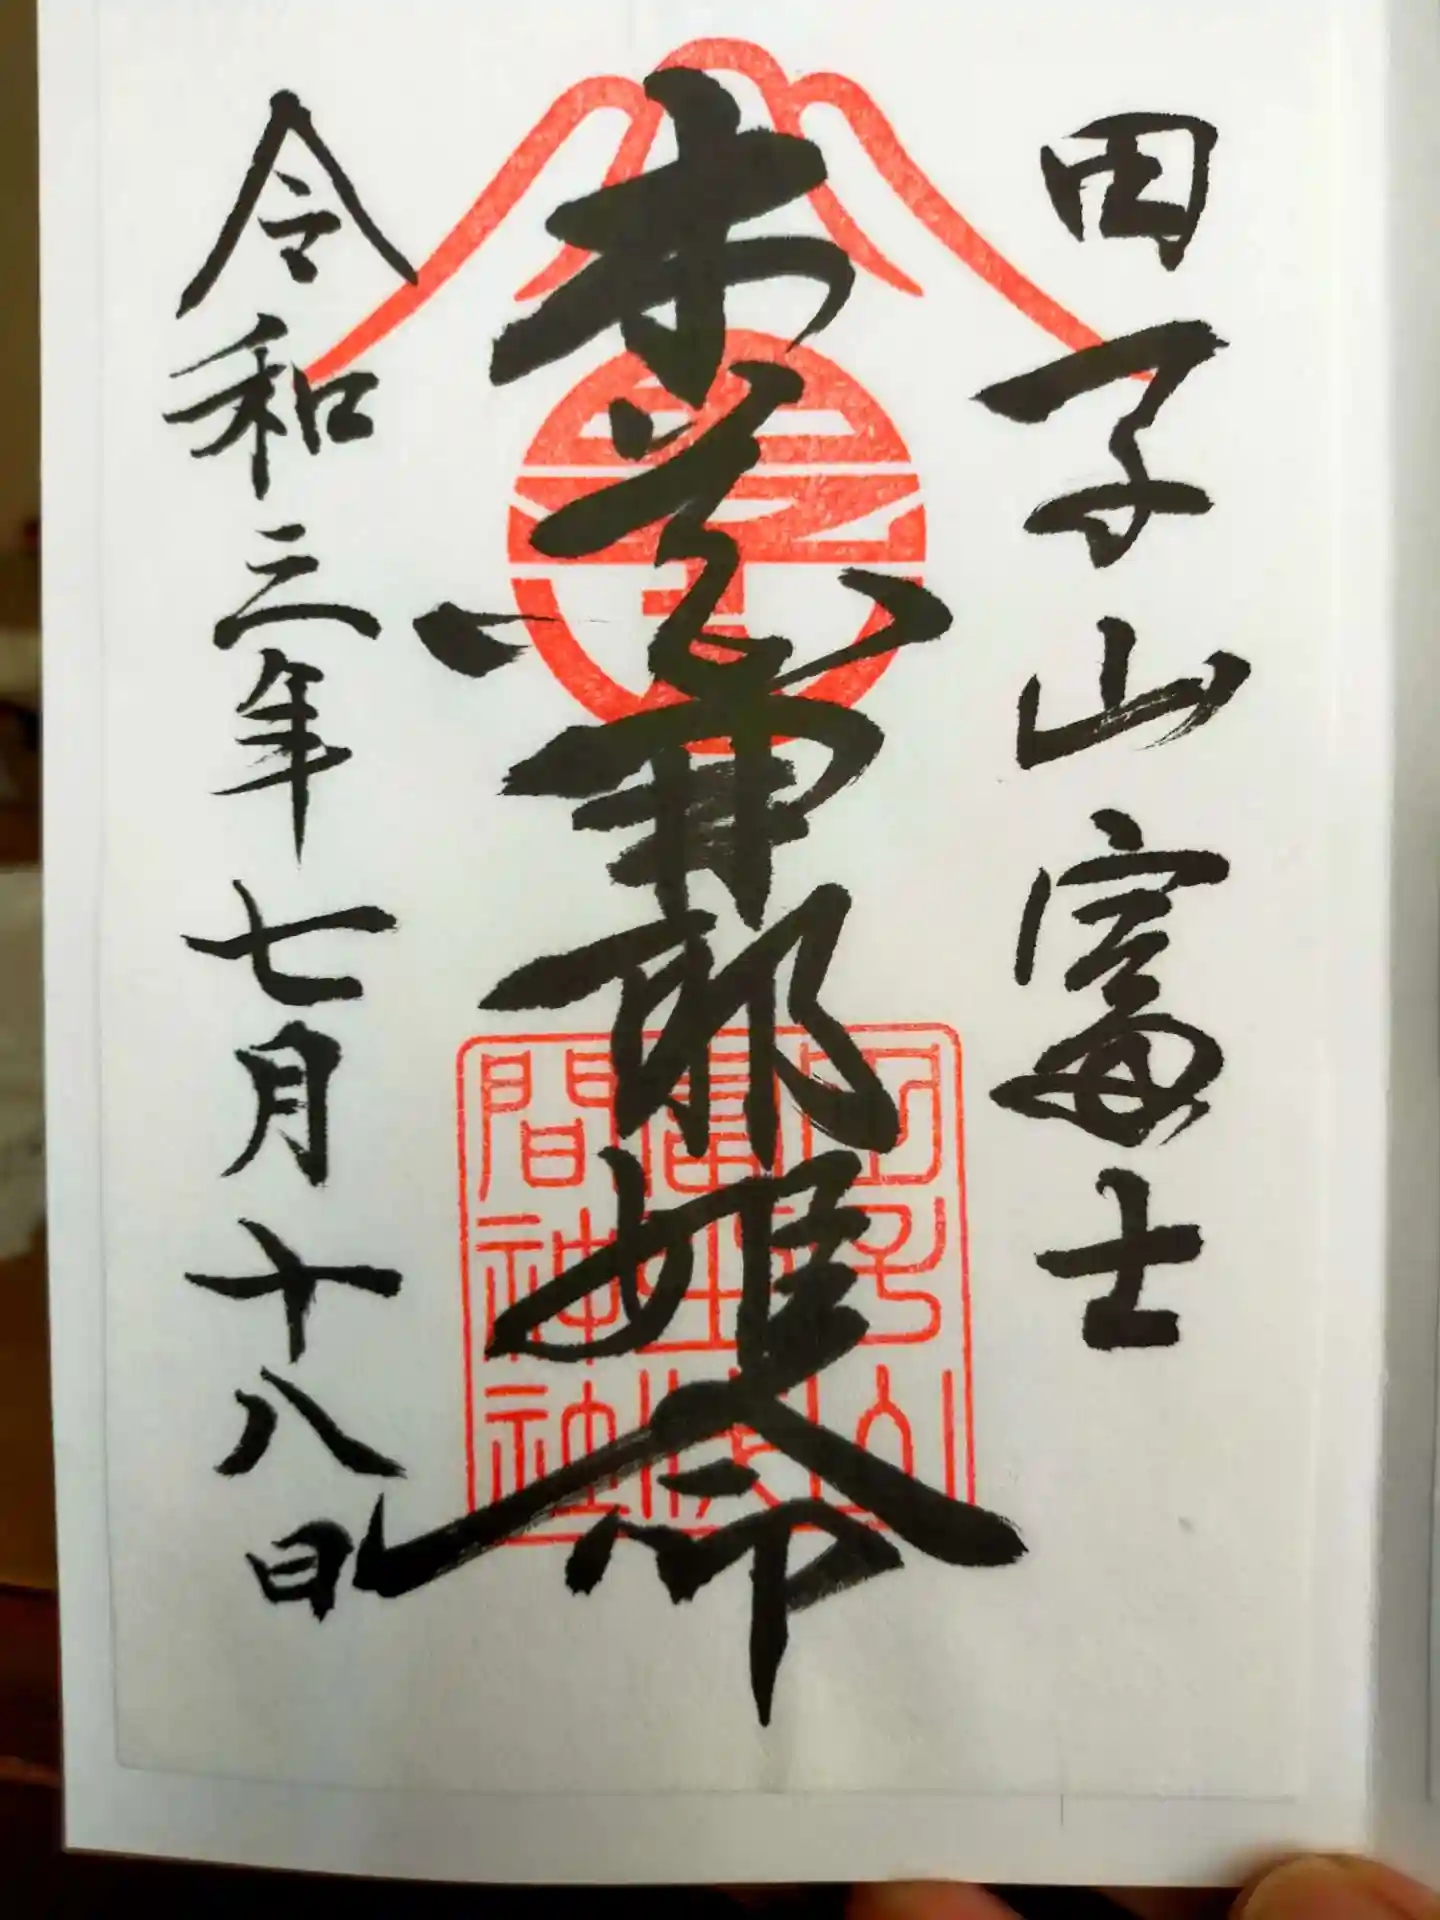 田子山富士
木花開耶姫命
令和三年七月十八日
田子山
富士浅
間神社